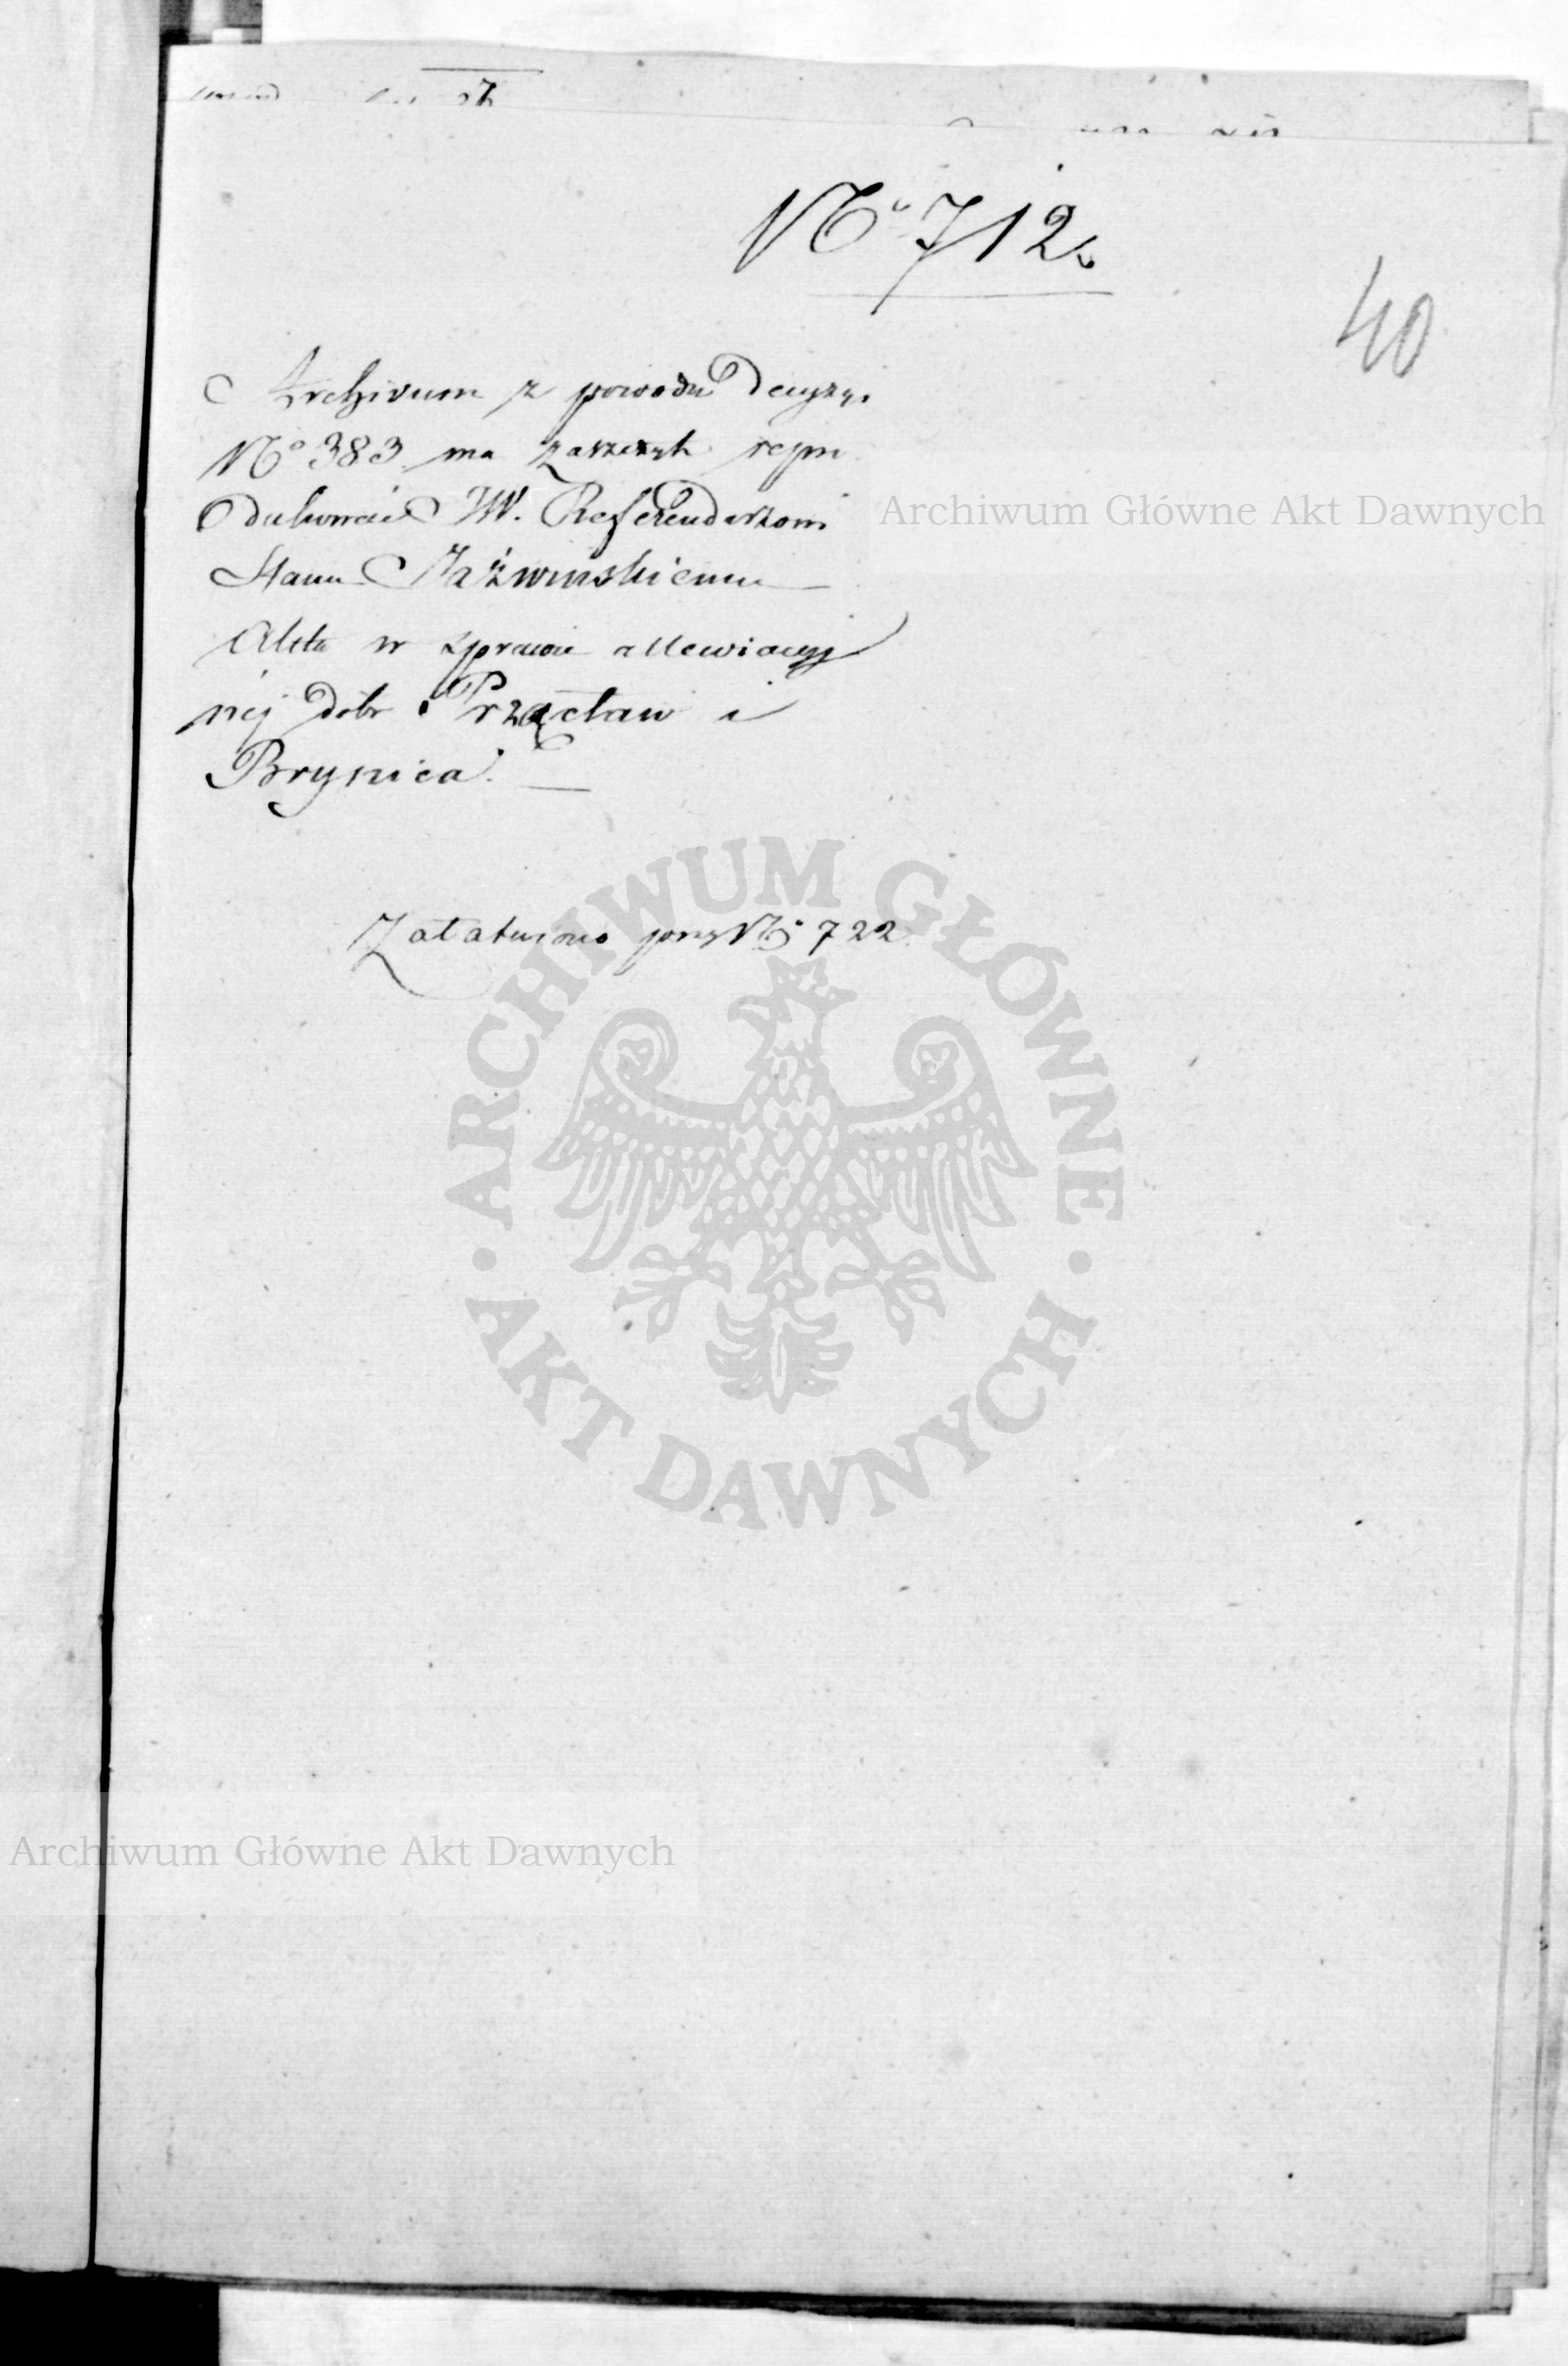 No 712.
40
Archivum z powodu Decyzyi
No 383 ma zaszczyt
JW. Referendarzowi
Stanu Jaźwinskiemu
Akta w sprawie allewiacyj
nej Dóbr Przecław i
Brynica.
Załatwiono przy No 722
Archiwum Główne Akt Dawnych
ARCHIWUM GŁÓWNE AKT DAWNYCH
Archiwum Główne Akt Dawnych